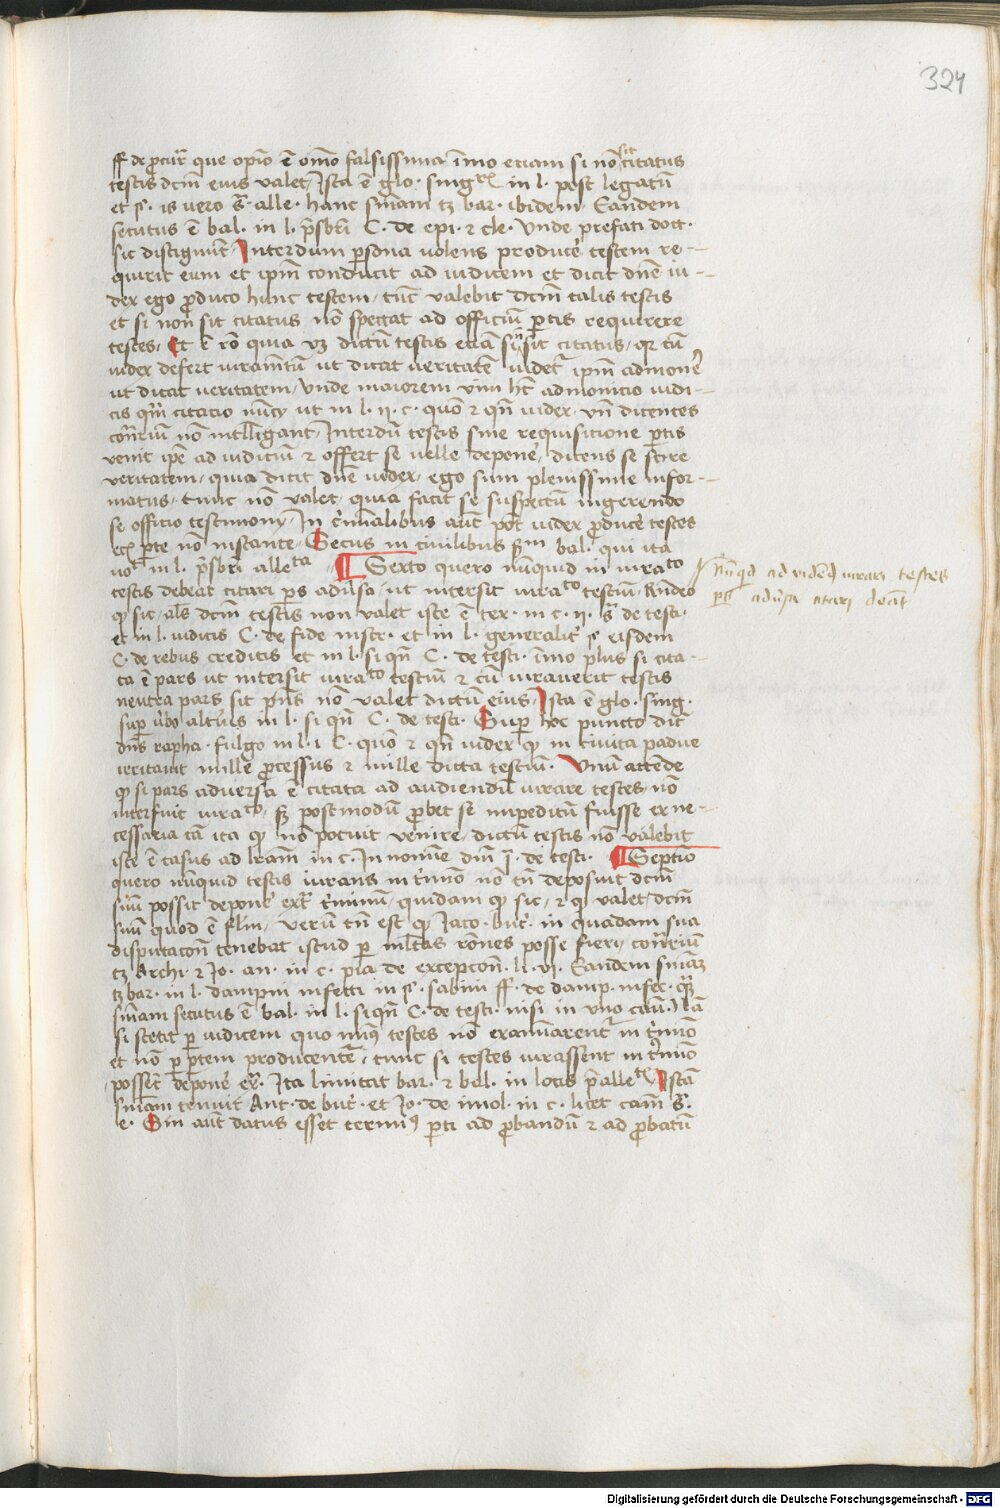 324
ff de ꝓcur̄ que opīo ē om̄o falsissima īmo etiam si non sit citatus
testis dcm̄ eius valet / Ista ē glo. sing^res in l. post legatū
et §. is vero s̄. alle. hanc sn̄iam tꝫ bar. ibidem. Eandem
secutus ē bal. in l. p̄sbrī C. de epi. ⁊ cle. Unde prefati doct.
sic distigunt / Interdum ꝑsona uolens producē testem re-
quirit eum et ipm̄ conducit ad iudicem et dicit dn̄e iu-
dex ego ꝓduco hunc testem / tūc valebit dcm̄ talis testis
et si non sit citatus nō spectat ad officiū ꝑtis requirere
testes / Et ē rō quia vꝫ dictū testis etiā si nō sit citatus / qꝛ cū
iudex defert iuramtū ut dicat ueritatē uidet^r ipm̄ admonē
ut dicat veritatem / Unde maiorem vim hēt admonicio iudi-
cis qm̄ citacio nūcy ut in l. ii. c. quō ⁊ qn̄ iudex. vn̄ dicentes
contrriū nō intlligant / Interdū testis sine requisitione ꝑtis
venit ipē ad iudiciū ⁊ offert se uelle deponē / dicens se scire
veritatem / quia dicit dn̄e iudex / ego sum plenissime infor-
matus / tunc nō valet / quia facit se suspectū ingerendo
se officio testimony / In c̄minalibus aūt pōt iudex ꝓducē testes
ecī ꝑte nō instante / Secus in ciuilibus ẜm bal. qui ita
no^t in l. p̄sbrī alle^ta ¶ Sexto quero nūquid in iura^to
testis debeat citari ꝑs adūsa / ut intersit iura^to testiū / Rn̄deo
ꝙ sic / als̄ dcm̄ testis non valet iste ē tex. in c. ii. s̄ de testi.
et in l. iudicis C. de fide instr. et in l. generalit̄ § eisdem
C. de rebus creditis et in l. si qn̄ C. de testi. īmo plus si cita-
ta ē pars ut intersit iura^to testiū ⁊ cū iurauerit testis
neutra pars sit pn̄s nō valet dictū eius / Ista ē glo. sing.
suꝑ ūbo altūis in l. si qn̄ C. de testi. Suꝑ hoc puncto dic̄
dn̄s rapha. fulgo in l. i C. quō ⁊ qn̄ iudex ꝙ in ciuita padue
irritauit mille ꝓcessus ⁊ mille dicta testiū. Unū attēde
ꝙ si pars aduersa ē citata ad audiendū iurare testes / nō
interfuit iura^to / sꝫ postmodū ꝓbet se impeditū fuisse ex ne-
cessaria cā ita ꝙ nō potuit venire / dictū testis nō valebit
iste ē casus ad lrām in c. In nomine dn̄i j̄. de testi. ¶ Septīo
quero nūnquid testis iurans in t̄mino nō tn̄ deposuit dcm̄
suū possit deponē ext̄ t̄minū / quidam ꝙ sic / ⁊ ꝙ valet dcm̄
suū quod ē flm̄ / verū tn̄ est ꝙ Iaco. but̄. in quadam sua
disputacon̄ tenebat istud ꝑ mltas rōnes posse fieri / contrriū
tꝫ Archi. ⁊ Jo. an. in c. pia de excepcon̄. li. vi. Eandem sn̄iaꝫ
tꝫ bar. in l. dampni infecti in §. sabini ff. de damp. infec. quā
sn̄iam secutus ē bal. in l. si qn̄ C. de testi. nisi in vno casu. Nā
si stetit ꝑ iudicem quo min^9 testes nō examinarent^r in t̄mino
et nō ꝑ ꝑtem producentē / tunc si testes iurassent in t̄mino
possent deponē ex̄. Ita limitat bar. ⁊ bal. in locis p̄alle^tis / Istā
sn̄iam tenuit Ant. de but̄. et Jo. de imol. in c. licet cam̄ s̄.
e. Sin aūt datus esset termin^9 ꝑti ad ꝓbandū ⁊ ad ꝓbatū
Nūqͥd ad vidēd iurari testes
ꝑs adūsa citari debeat
Digitalisierung gefördert durch die Deutsche Forschungsgemeinschaft - DFG